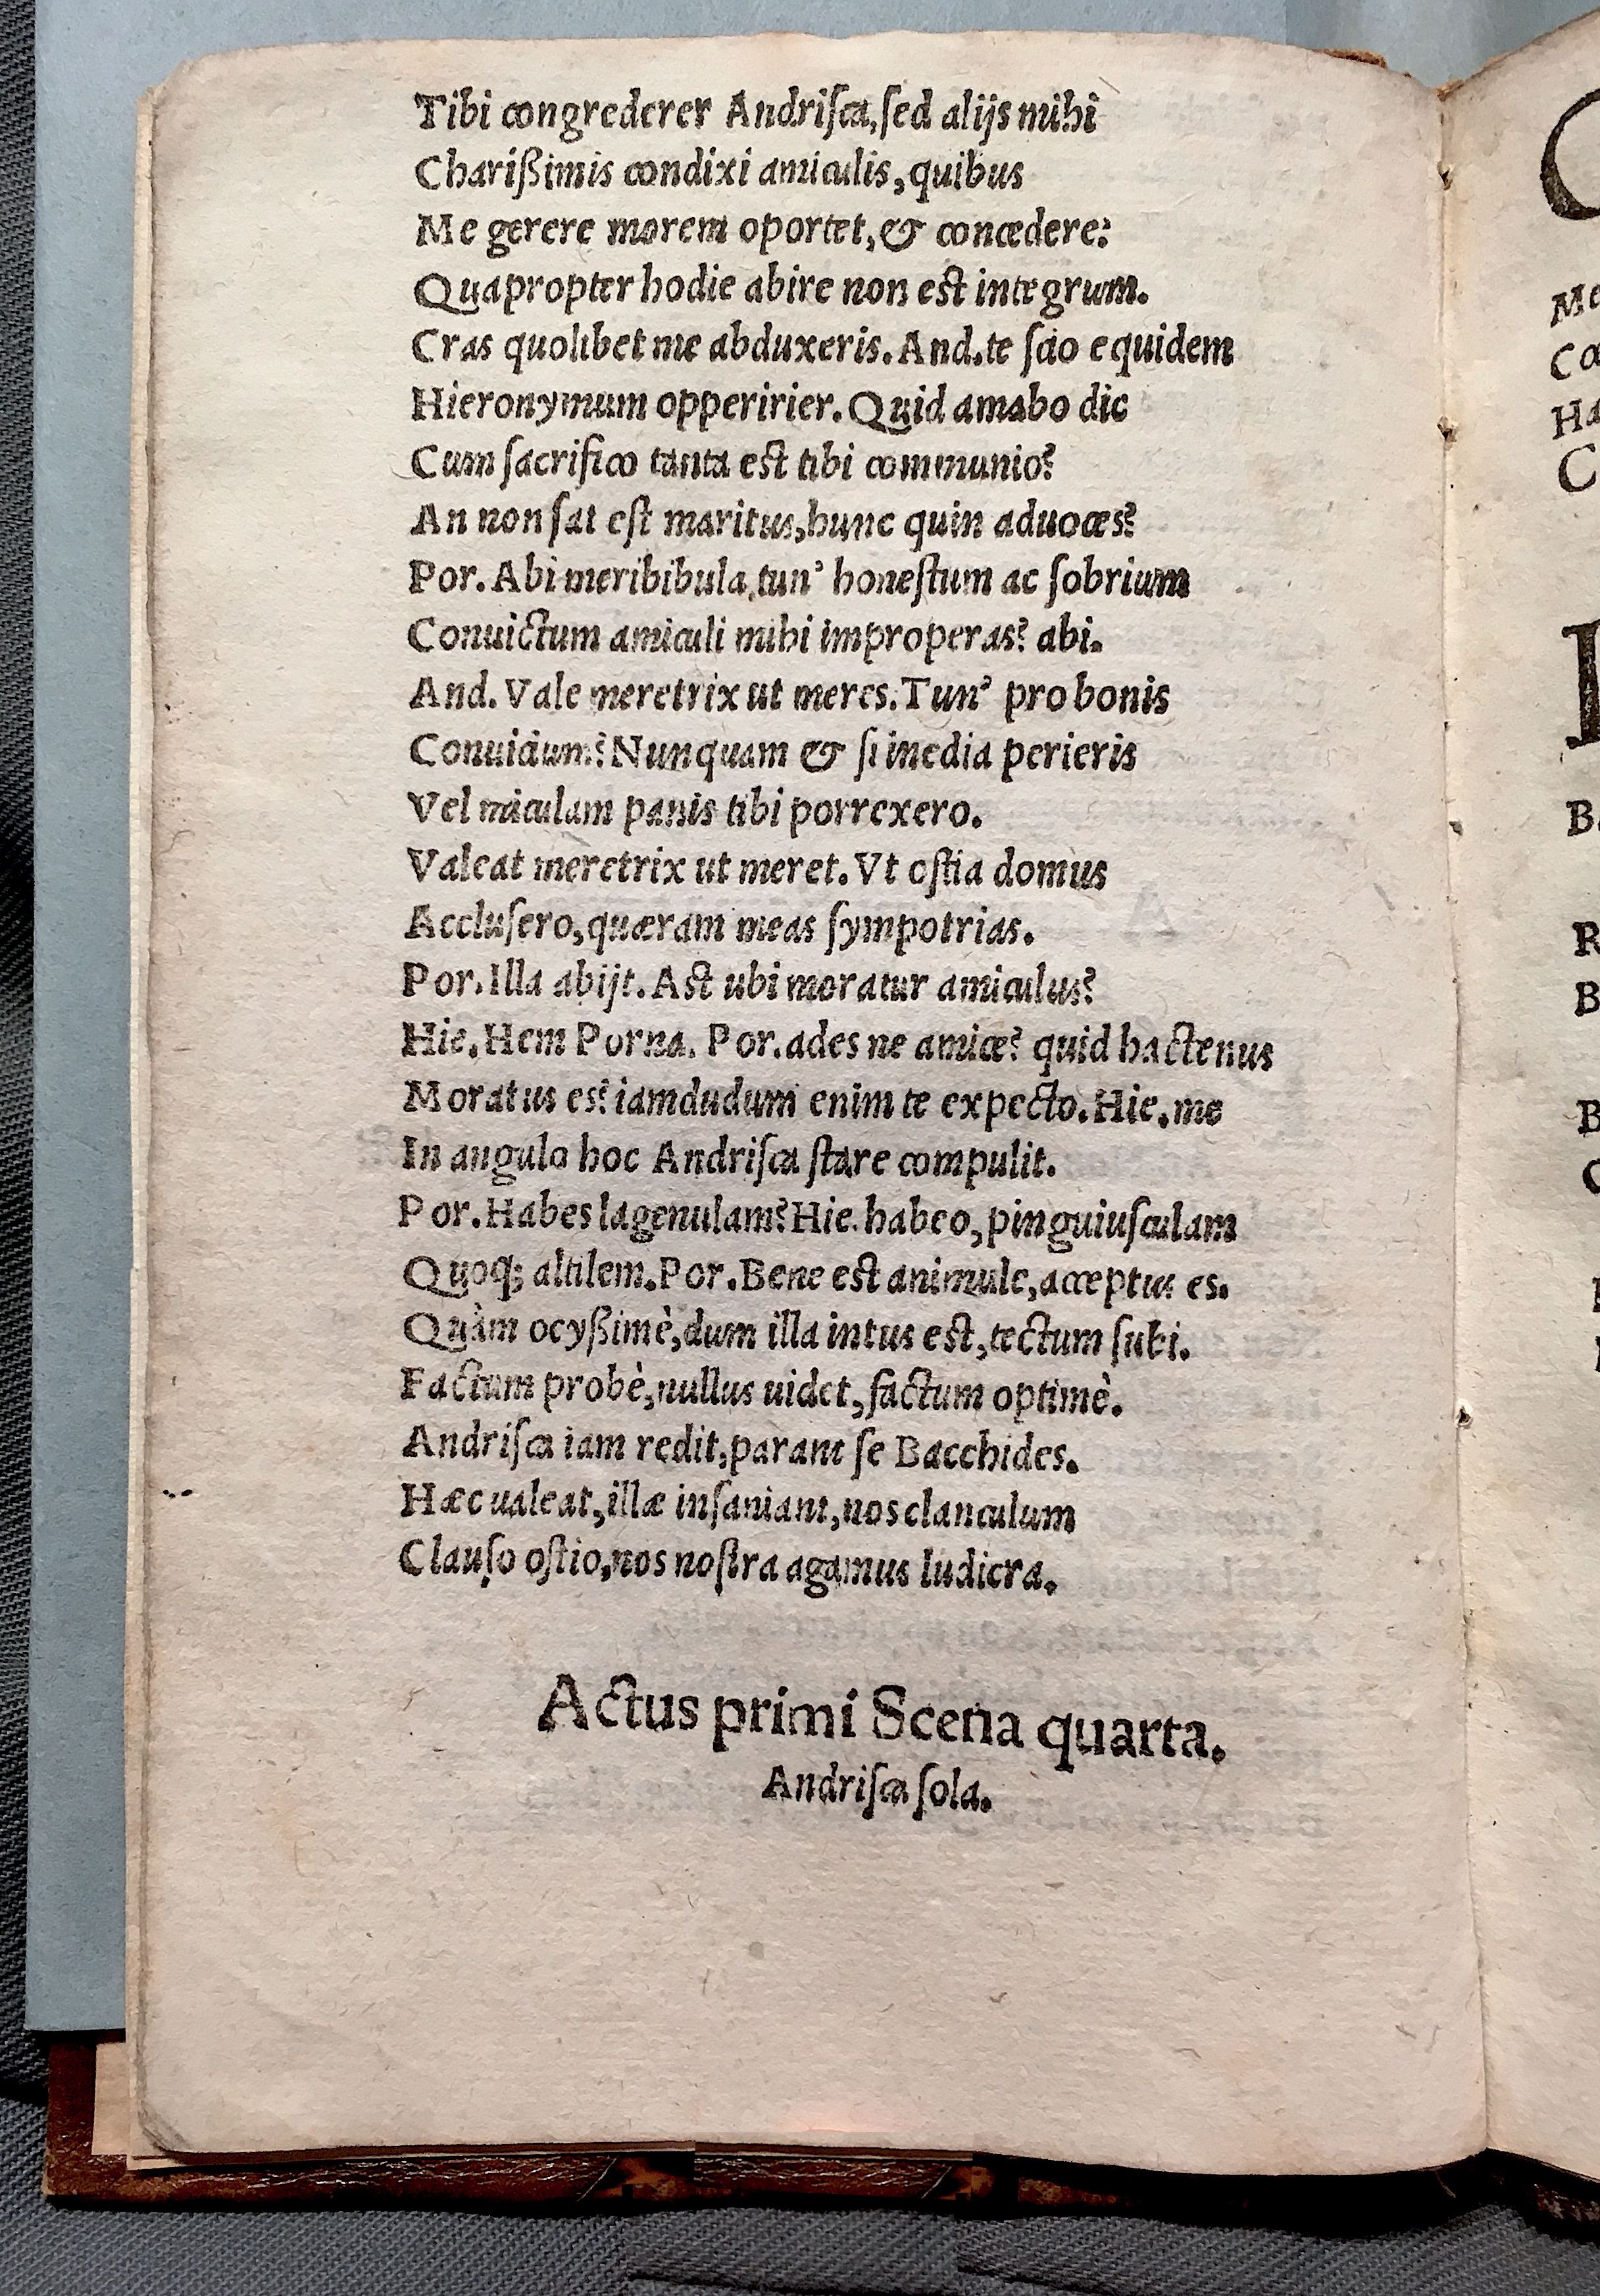 Tibi congrederer Andriſca,ſed alijs mihi
Charißimis condixi amiculis,quibus
Me gerere morem oportet,& concedere:
Quapropter hodie abire non est integrum.
Cras quolibet me abduxeris.And.te ſcio equidem
Hieronymum opperirier.Quid amabo dic
Cum ſacrifico tanta est tibi communio?
An non ſat eſt maritus,hunc quin aduoces?
Por.Abi meribibula,tun' honeſtum ac ſobrium
Conuictum amiculi mihi improperas? abi.
And.Vale meretrix ut meres.Tun' pro bonis
Conuicium? Nunquam & ſi inedia perieris
Vel miculam panis tibi porrexero.
Valeat meretrix ut meret.Vt oſtia domus
Accluſero,quæram meas ſympotrias.
Por.Illa abijt.Ast ubi moratur amiculus?
Hie.Hem Porna. Por.ades ne amice? quid hactenus
Moratus es? iamdudum enim te expecto.Hie.me
In angulo hoc Andriſca ſtare compulit.
Por.Habes lagenulam? Hie.habeo,pinguiuſculam
Quoq; altilem.Por.Bene est animule,acceptus es.
Quàm ocyßimè,dum illa intus est,tectum ſubi.
Factum probè,nullus uidet,factum optimè.
Andriſca iam redit,parant ſe Bacchides.
Hæc ualeat,illæ inſaniant,nos clanculum
Clauſo oſtio,nos noſtra agamus ludicra.
Actus primi Scena quarta.
Andriſca ſola.